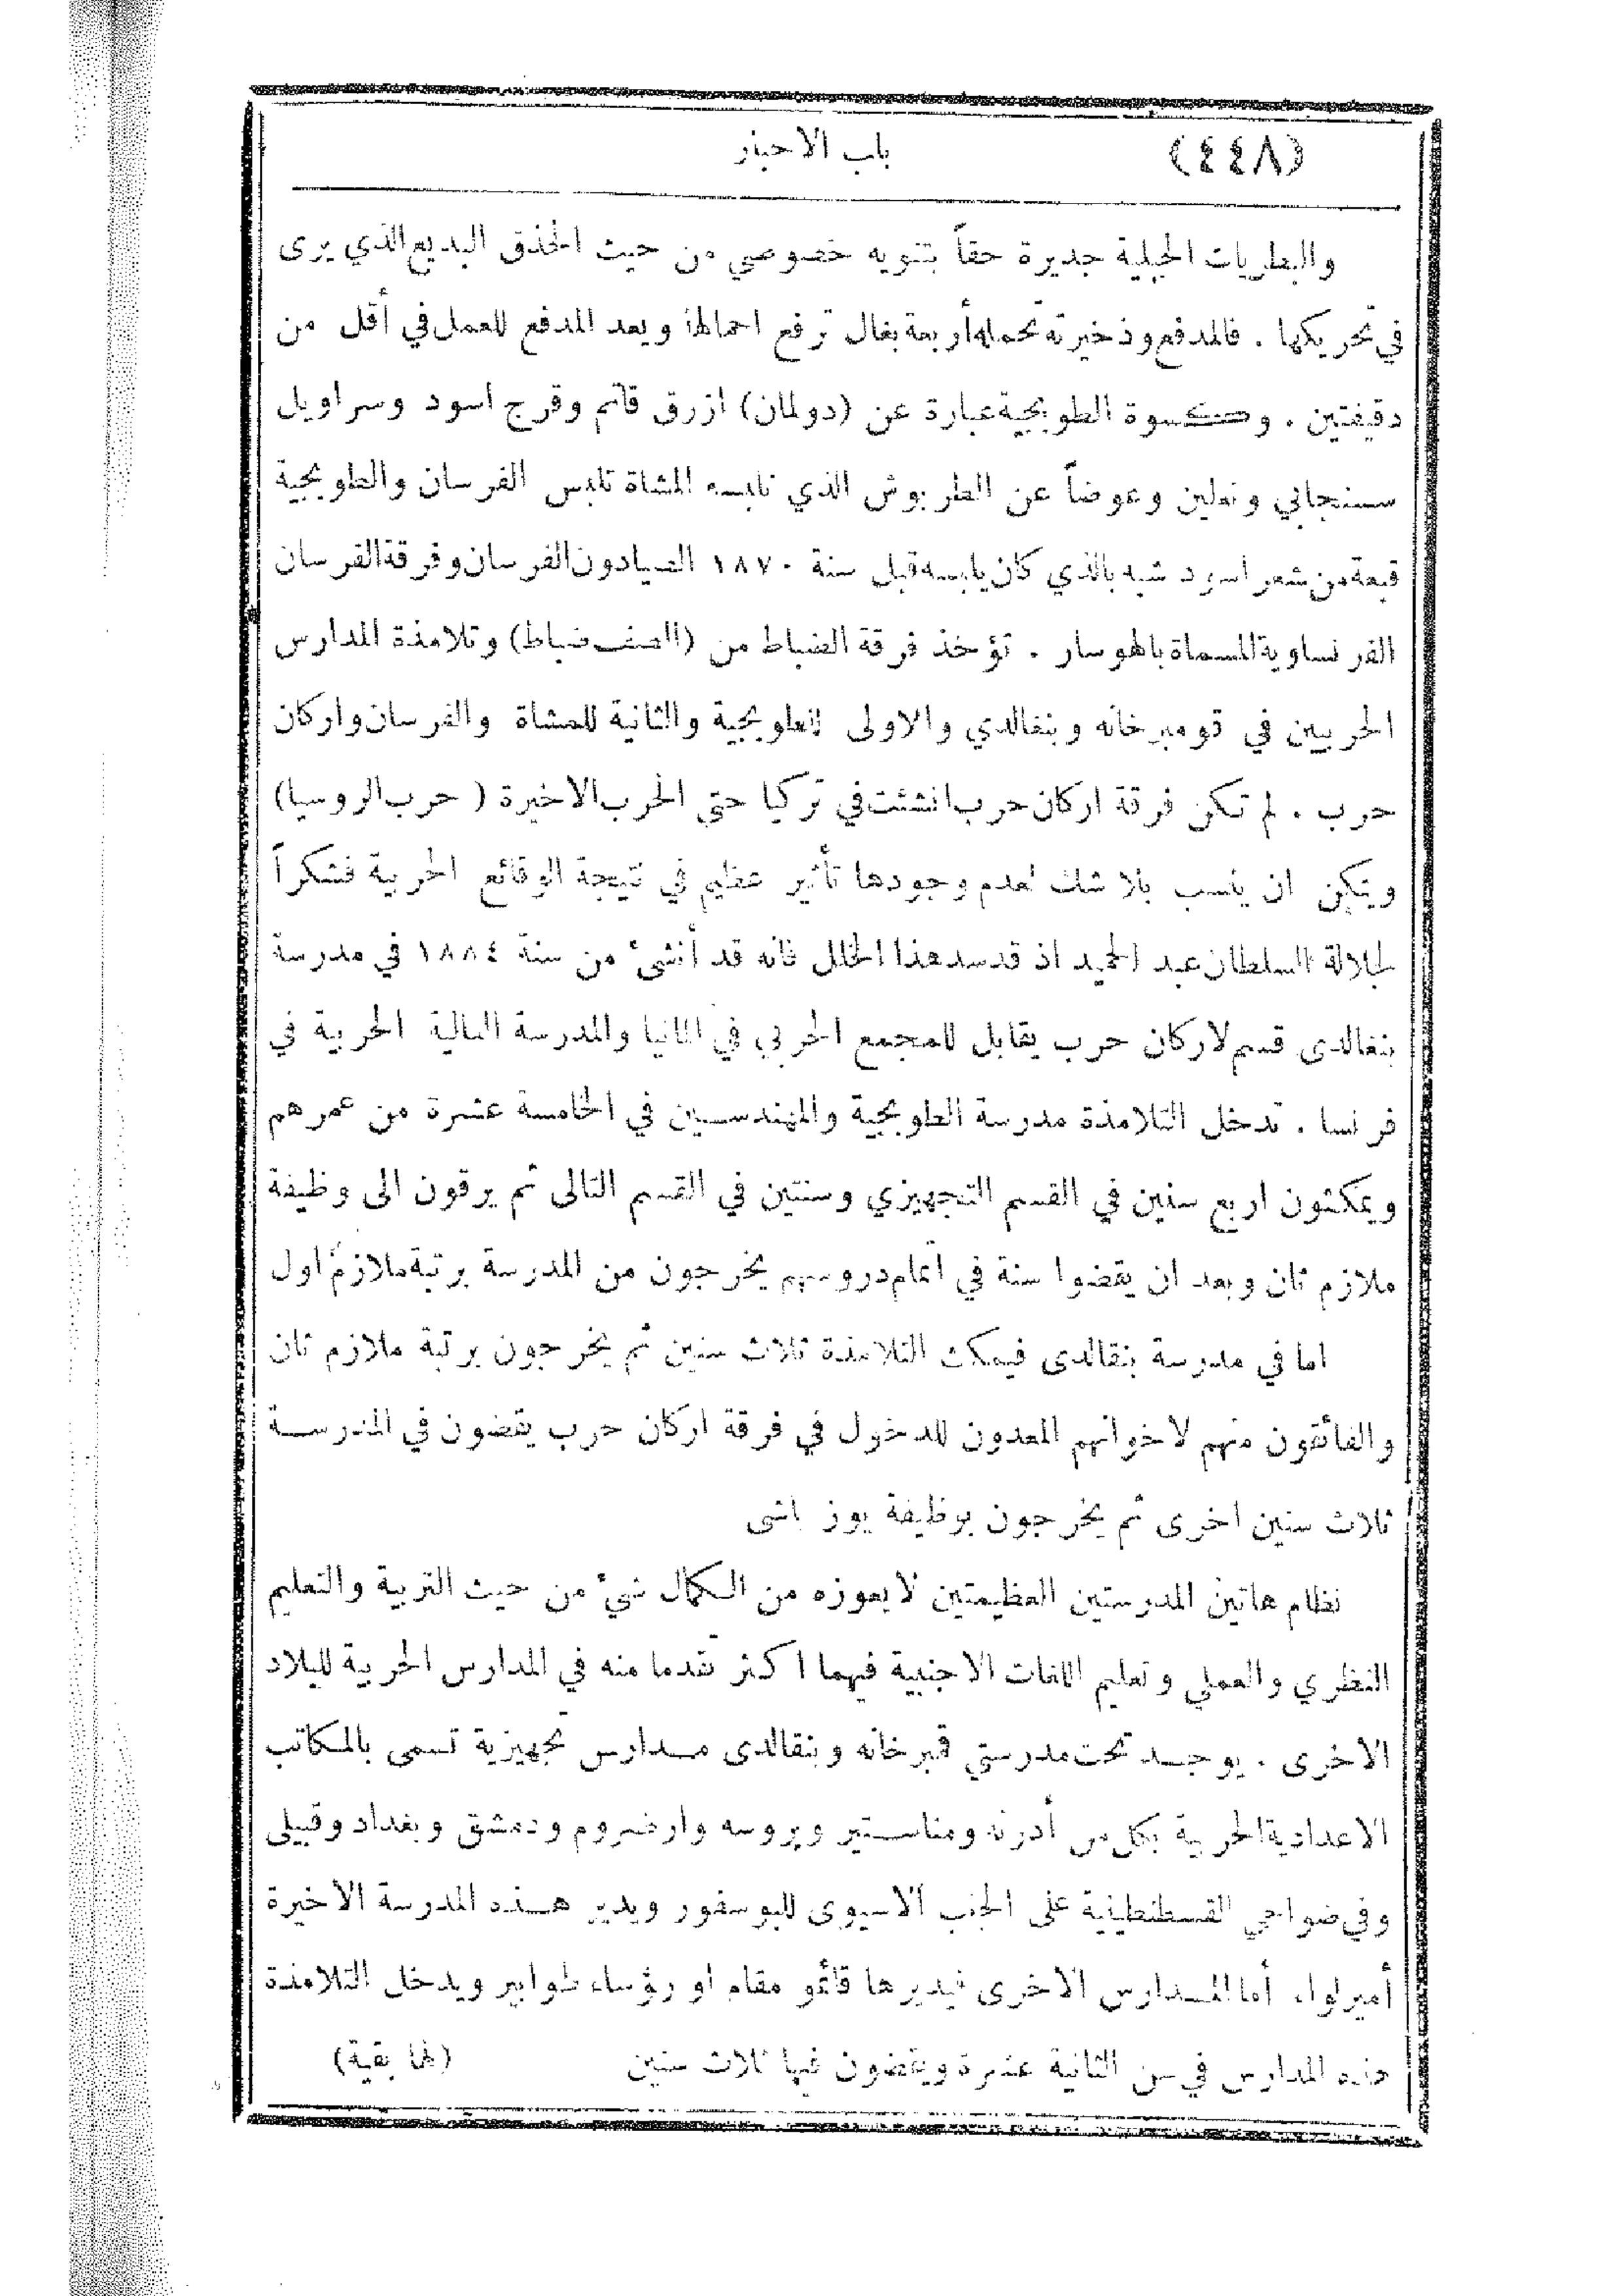 (٤٤٨) باب الاخبار
والبطريات الجبلية جديرة حقاً بتنويه خصوصي من حيث الحذق البديع الذي يرى
في تحريكها . فالمدفع وذخيرته تحمله أربعة بغال ترفع احمالها ويعد المدفع للعمل في أقل من
دقيقتين . وكسوة الطوبجية عبارة عن (دولمان) ازرق قاتم وفرج اسود وسراويل
سنجابي ونعلين وعوضاً عن الطربوش الذي تلبسه المشاة تلبس الفرسان والطوبجية
قبعة من شعر اسود شبه بالذي كان يلبسه قبل سنة ١٨٧٠ الصيادون الفرسان وفرقة الفرسان
الفرنساوية المسماة بالهوسار . تؤخذ فرقة الضباط من (الصف ضباط) وتلامذة المدارس
الحربيين في قومبرخانه وبنغالدي والاولى للطوبجية والثانية للمشاة والفرسان واركان
حرب . لم تكن فرقة اركان حرب انشئت في تركيا حتى الحرب الاخيرة ( حرب الروسيا)
ويمكن ان ينسب بلا شك لعدم وجودها تأثير عظيم في نتيجة الوقائع الحربية فشكراً
لجلالة السلطان عبد الحميد اذ قد سد هذا الخلل فانه قد أنشئ من سنة ١٨٨٤ في مدرسة
بنغالدى قسم لاركان حرب يقابل للمجمع الحربي في المانيا والمدرسة العالية الحربية في
فرنسا . تدخل التلامذة مدرسة الطوبجية والمهندسين في الخامسة عشرة من عمرهم
ويمكثون اربع سنين في القسم التجهيزي وسنتين في القسم التالى ثم يرقون الى وظيفة
ملازم ثان وبعد ان يقضوا سنة في اتمام دروسهم يخرجون من المدرسة برتبة ملازم اول
اما في مدرسة بنقالدى فيمكث التلامذة ثلاث سنين ثم يخرجون برتبة ملازم ثان
والفائقون منهم لاخوانهم المعدون للدخول في فرقة اركان حرب يقضون في المدرسة
ثلاث سنين اخرى ثم يخرجون بوظيفة يوز باشى
نظام هاتين المدرستين العظيمتين لا يعوزه من الكمال شيء من حيث التربية والتعليم
النظري والعملي وتعليم اللغات الاجنبية فيهما اكثر تقدما منه في المدارس الحربية للبلاد
الاخرى . يوجد تحت مدرستي قبرخانه وبنقالدى مدارس تجهيزية تسمى بالمكاتب
الاعدادية الحربية بكل من أدرنه ومناستير وبروسه وارضروم ودمشق وبغداد وقبيلى
وفي ضواحي القسطنطينية على الجنب الاسيوى للبوسفور ويدير هذه المدرسة الاخيرة
أميرلوا، أما المدارس الاخرى فيديرها قائمو مقام او رؤساء طوابير ويدخل التلامذة
هذه المدارس في سن الثانية عشرة ويقضون فيها ثلاث سنين (لها بقية)